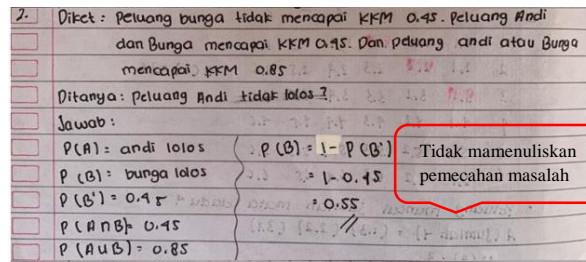 2. Diket : Peluang bunga tidak mencapai KKM 0.45. Peluang Andi
dan Bunga mencapai KKM 0.45. Dan peluang andi atau Bunga
mencapai KKM 0.85
Ditanya : Peluang Andi tidak lolos ?
Jawab :
P(A) = andi lolos
P (B) = bunga lolos
P (B') = 0.45
P (A ∩ B) = 0.45
P (A ∪ B) = 0.85
P (B) = 1 - P (B')
= 1 - 0.45
= 0.55
Tidak mamenuliskan
pemecahan masalah